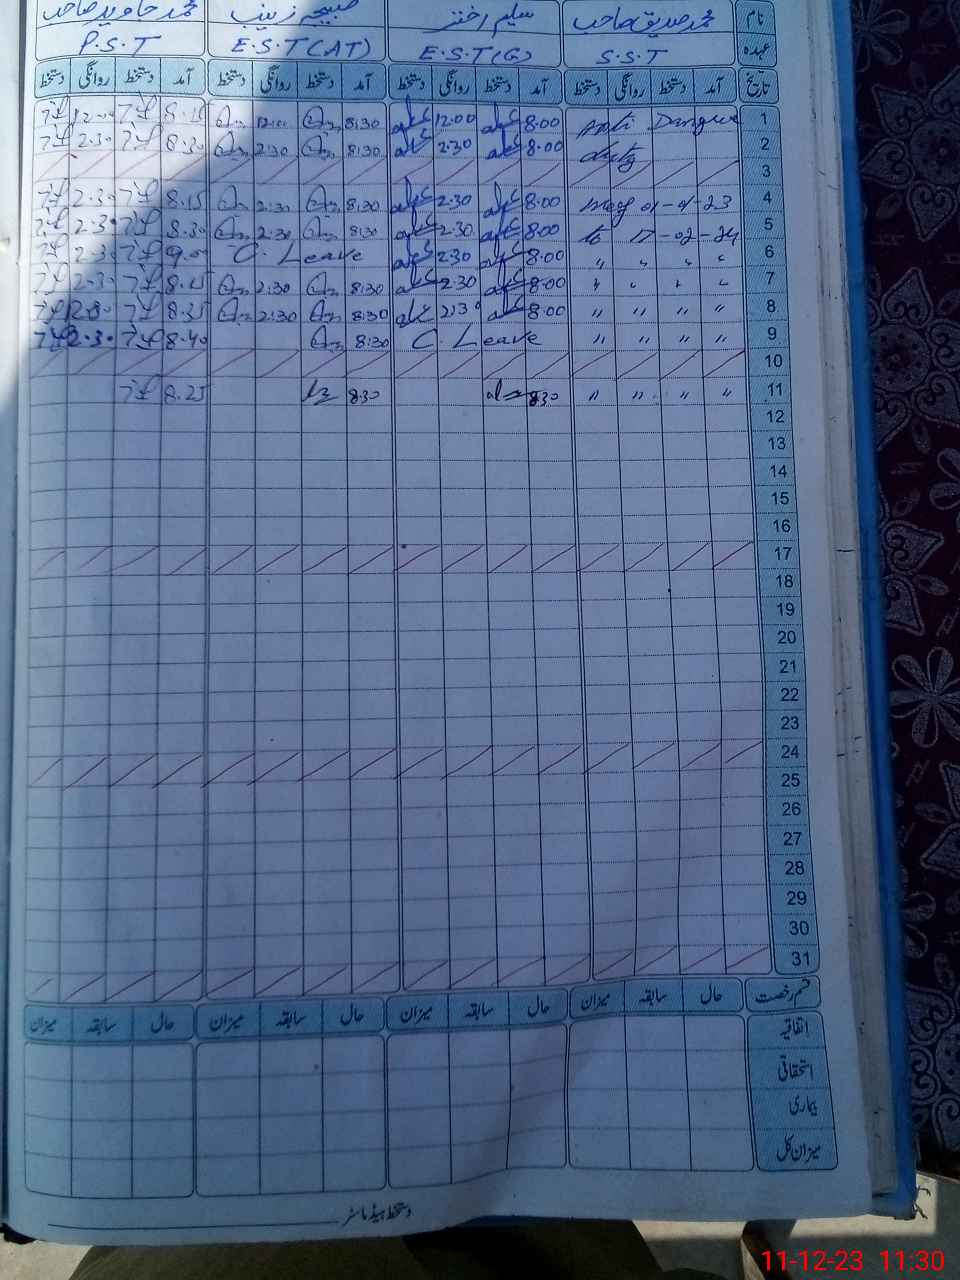 نام محمد صدیق صاحب سلیم اختر صبیحہ زینب محمد جاوید صاحب
عہدہ S.S.T E.S.T(G) E.S.T(AT) P.S.T
تاریخ آمد دستخط روانگی دستخط آمد دستخط روانگی دستخط آمد دستخط روانگی دستخط آمد دستخط روانگی دستخط
1 Anti Dengue 8.00 12.00 8:30 12:00
2 duty 8.00 2.30 8:30 2:30 2.30
3
4 01-01-23 8.00 2.30 8:30 2:30 8.15 2.30
5 to 17-02-24 8.00 2.30 8:30 2:30 8.30 2.30
6 " " " " 8.00 2.30 C. Leave 9.00 2.30
7 " " " " 8.00 2.30 8:30 2:30 8.15 2.30
8 " " " " 8.00 2:30 8:30 2:30 8.35 2.30
9 " " " " C. Leave 8:30 8.40 2.30
10
11 " " " " 8:30 8:30 8.25
12
13
14
15
16
17
18
19
20
21
22
23
24
25
26
27
28
29
30
31
قسم رخصت حال سابقہ میزان حال سابقہ میزان حال سابقہ میزان حال سابقہ میزان
اتفاقیہ
استحقاقی
بیماری
میزان کل
دستخط ہیڈ ماسٹر
11-12-23 11:30